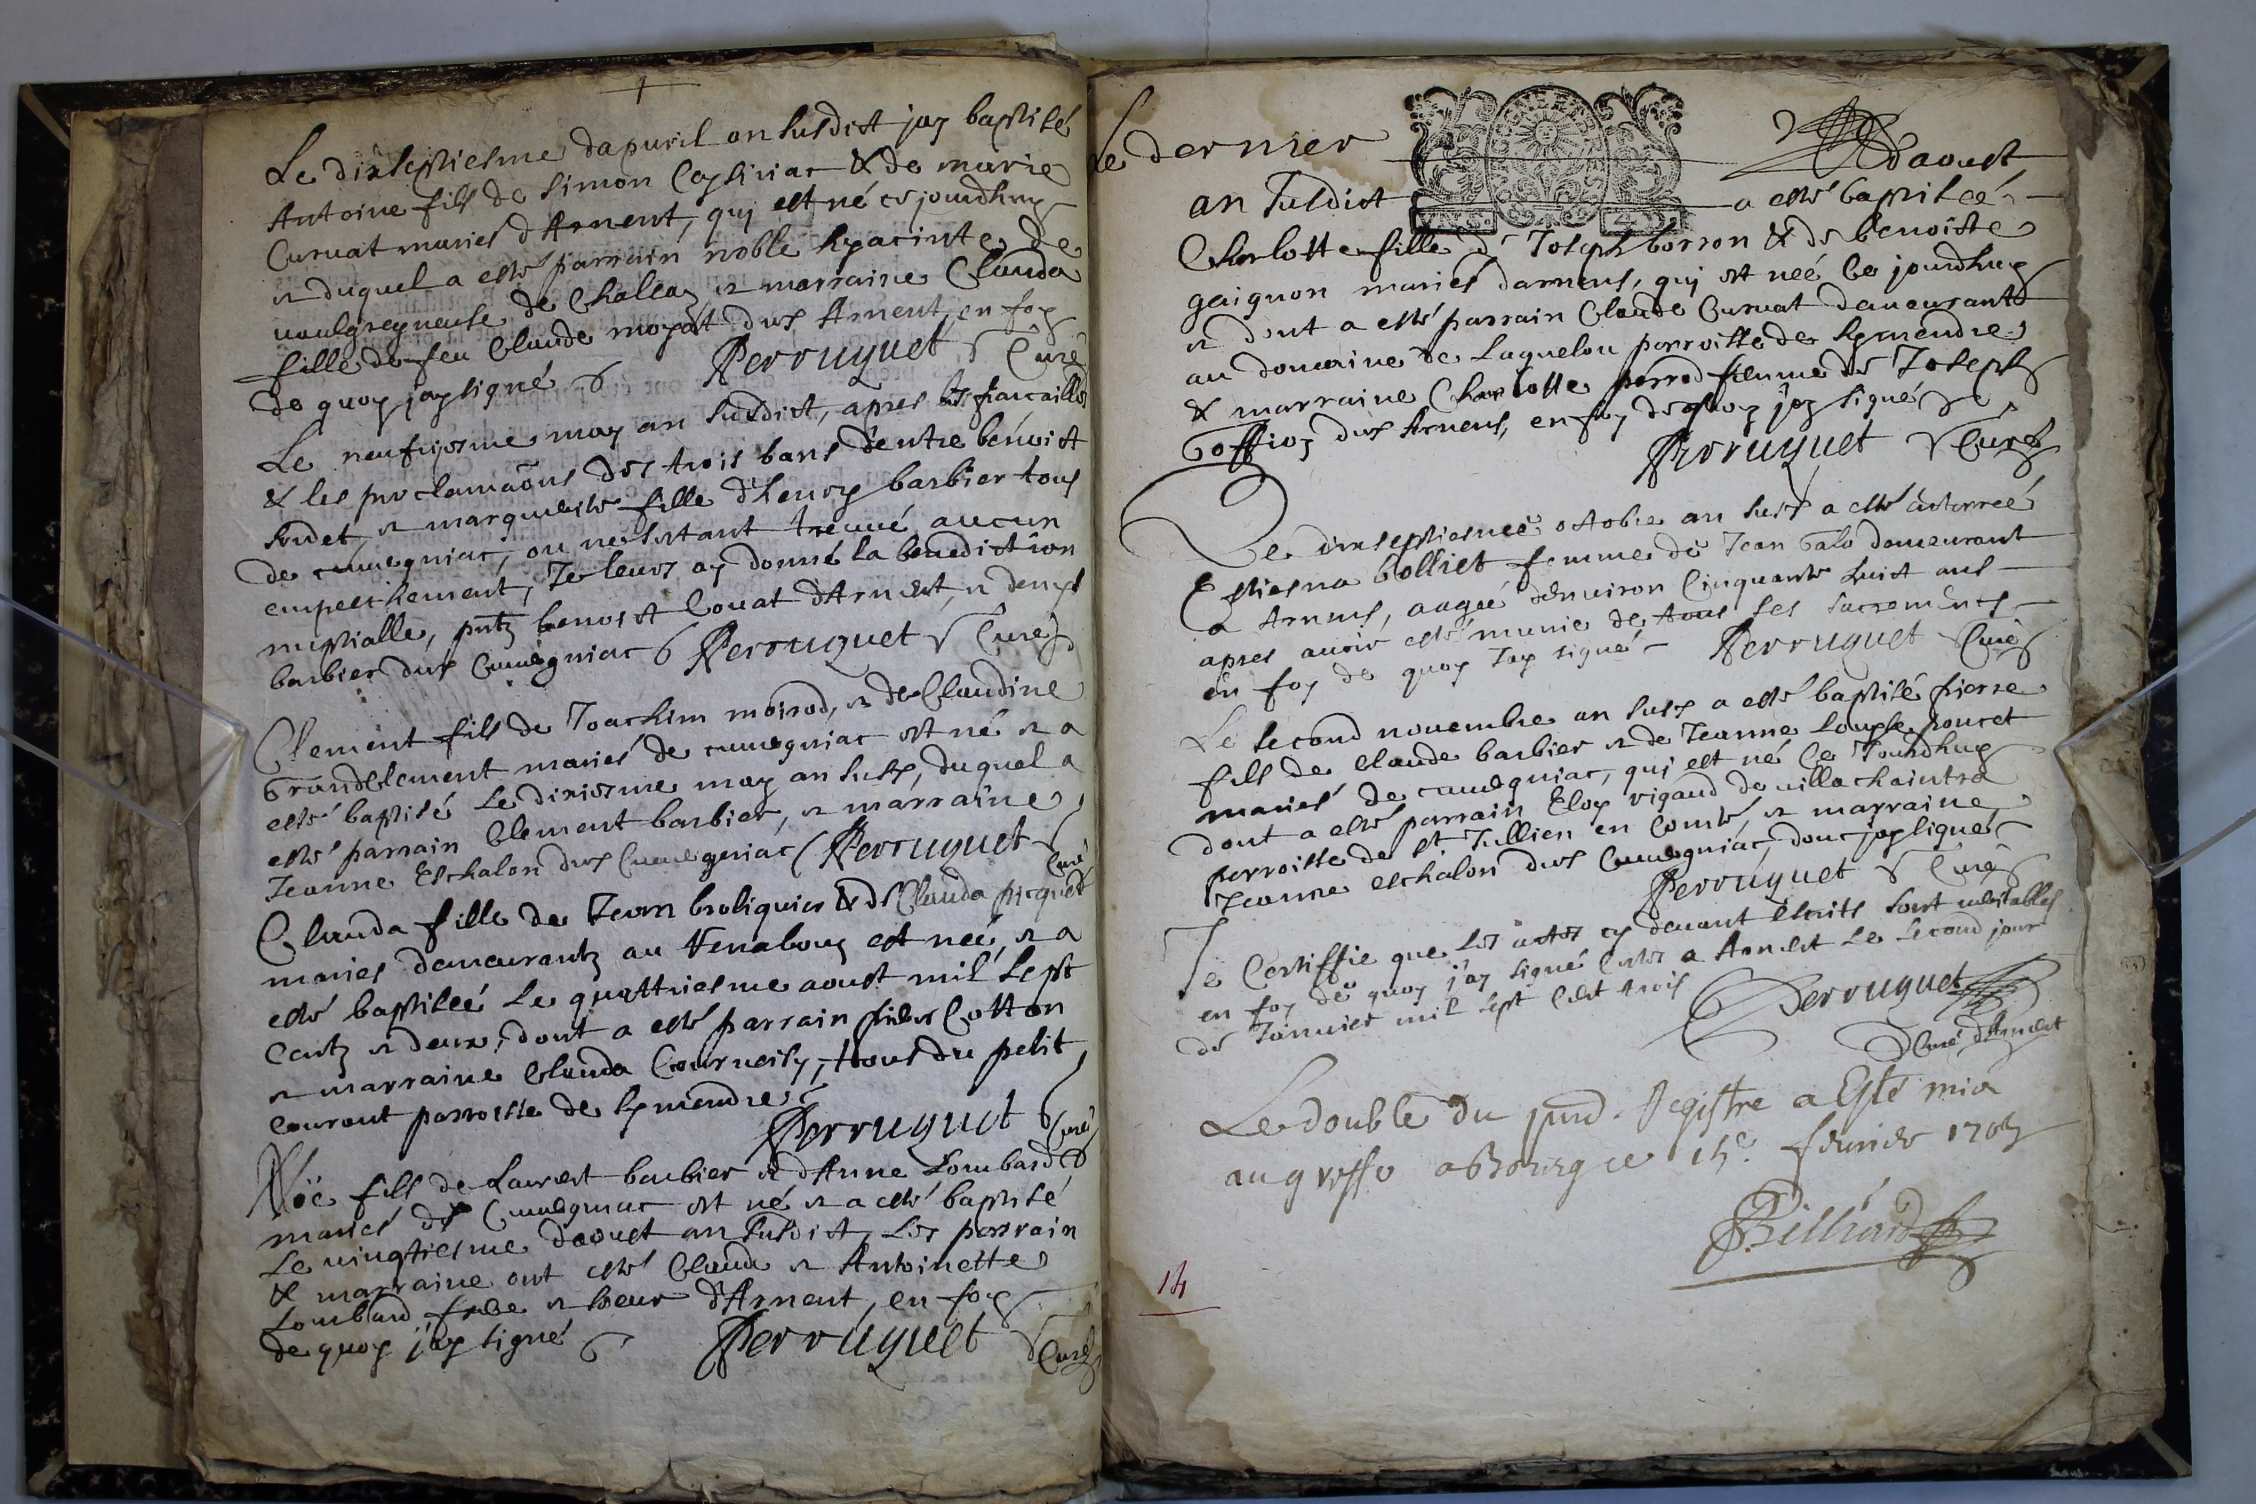 Le dixseptiesme dapuril an susdict jay baptisé
Antoine fils de Simon Cayliniac & de marie
Curuat mariés d'Arnent, quj est né cejourdhuy
& duquel a esté parrain noble hyacinte de
de Challea & marraine Clauda
fille de feu Claude moyat dud Arnent, en foy
de quoy jay signé Perruquet Curé
Le neufuiesme may an susdict, apres les fiancailles
& les proclamaôns des trois bans d'entre benoist
Sondet & marguerite fille d'henry barbier tous
de cuuegniac, ou ne s'estant treuué aucun
empeschement, Je leurs ay donné la benediction
nuptialle, pntz benoist Couat d'Arnent, & denys
barbier dud Cuuegniac Perruquet Curé
Clement fils de Joachim moirod, & de Claudine
Grandclement mariés de cuuegniac est né & a
esté baptisé Le dixiesme may an susd, duquel a
esté parrain Clement barbier, & marraine
Jeanne Eschalon dud Cuuegniac Perruquet Curé
Clauda fille de Jean broliquier & de Clauda picquet
mariés demeurantz au Venaboug est neé, & a
esté baptiseé Le quattriesme aoust mil sept
centz & deux, dont a esté parrain Cotton
& marraine Clauda Cournessy, tous du petit
courant parroisse de hymendre
Perruquet Curé
Noë fils de Laurent barbier & d'Anne Lombard
mariés de Cuuegniac est né & a esté baptisé
Le vingtiesme d'aoust an susdict, Les parrain
& marraine ont esté Claude & Antoinette
Lombard frere & soeur d'Arnent, en foy
de quoy j'ay signé Perruquet Curé
Le dernier daoust
an susdict a esté baptiseé
Charlotte fille de Joseph borron & de benoiste
gaignon mariés darnens, quj est neé Ce jourdhuy
& dont a esté parrain Claude Curuat demeurant
au domaine de Laquelou parroisse de hymendre
& marraine Charlotte perrod femme de Joseph
Goffioz dud Arnens, en foy de quoy jay signé
Perruquet Curé
Le dixseptiesme octobre an susd a esté enterreé
Estiena bolliet femme de Jean Galo demeurant
a Arnens, aageé d'enuiron Cinquante huict ans
apres auoir esté munie de tous ses sacrements
en foy de quoy Jay signé Perruquet Curé
Le second nouembre an susd a esté baptisé pierre
fils de Claude barbier & de Jeanne Louyse poncet
mariés de cuuegniac, quj est né Ce Jourdhuy
dont a esté parrain Eloy rigaud de villachaintra
parroisse de St Jullien en Comté & marraine
Jeanne eschalon dud Cuuegniac, donc jay signé
Perruquet Curé
Je Certiffie que Les actes cy deuant escrits sont veritables
en foy de quoy j'ay signé Curé a Arnent Le second jour
de Januier mil sept Cent trois
Perruquet
Curé d'Arnent
Le double du pnd. Registre a Esté mis
au greffe a Bourg ce 15e feurier 1703
Billiard
14